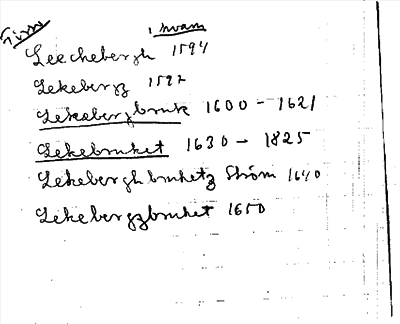 i kvam
Leechebergh 1594
Lekebergz 1597
Lekebergbruk 1600 - 1621
Lekebruket 1630 - 1825
Lekebergh bruhetz Ström 1640
Lekebergzbruket 1650